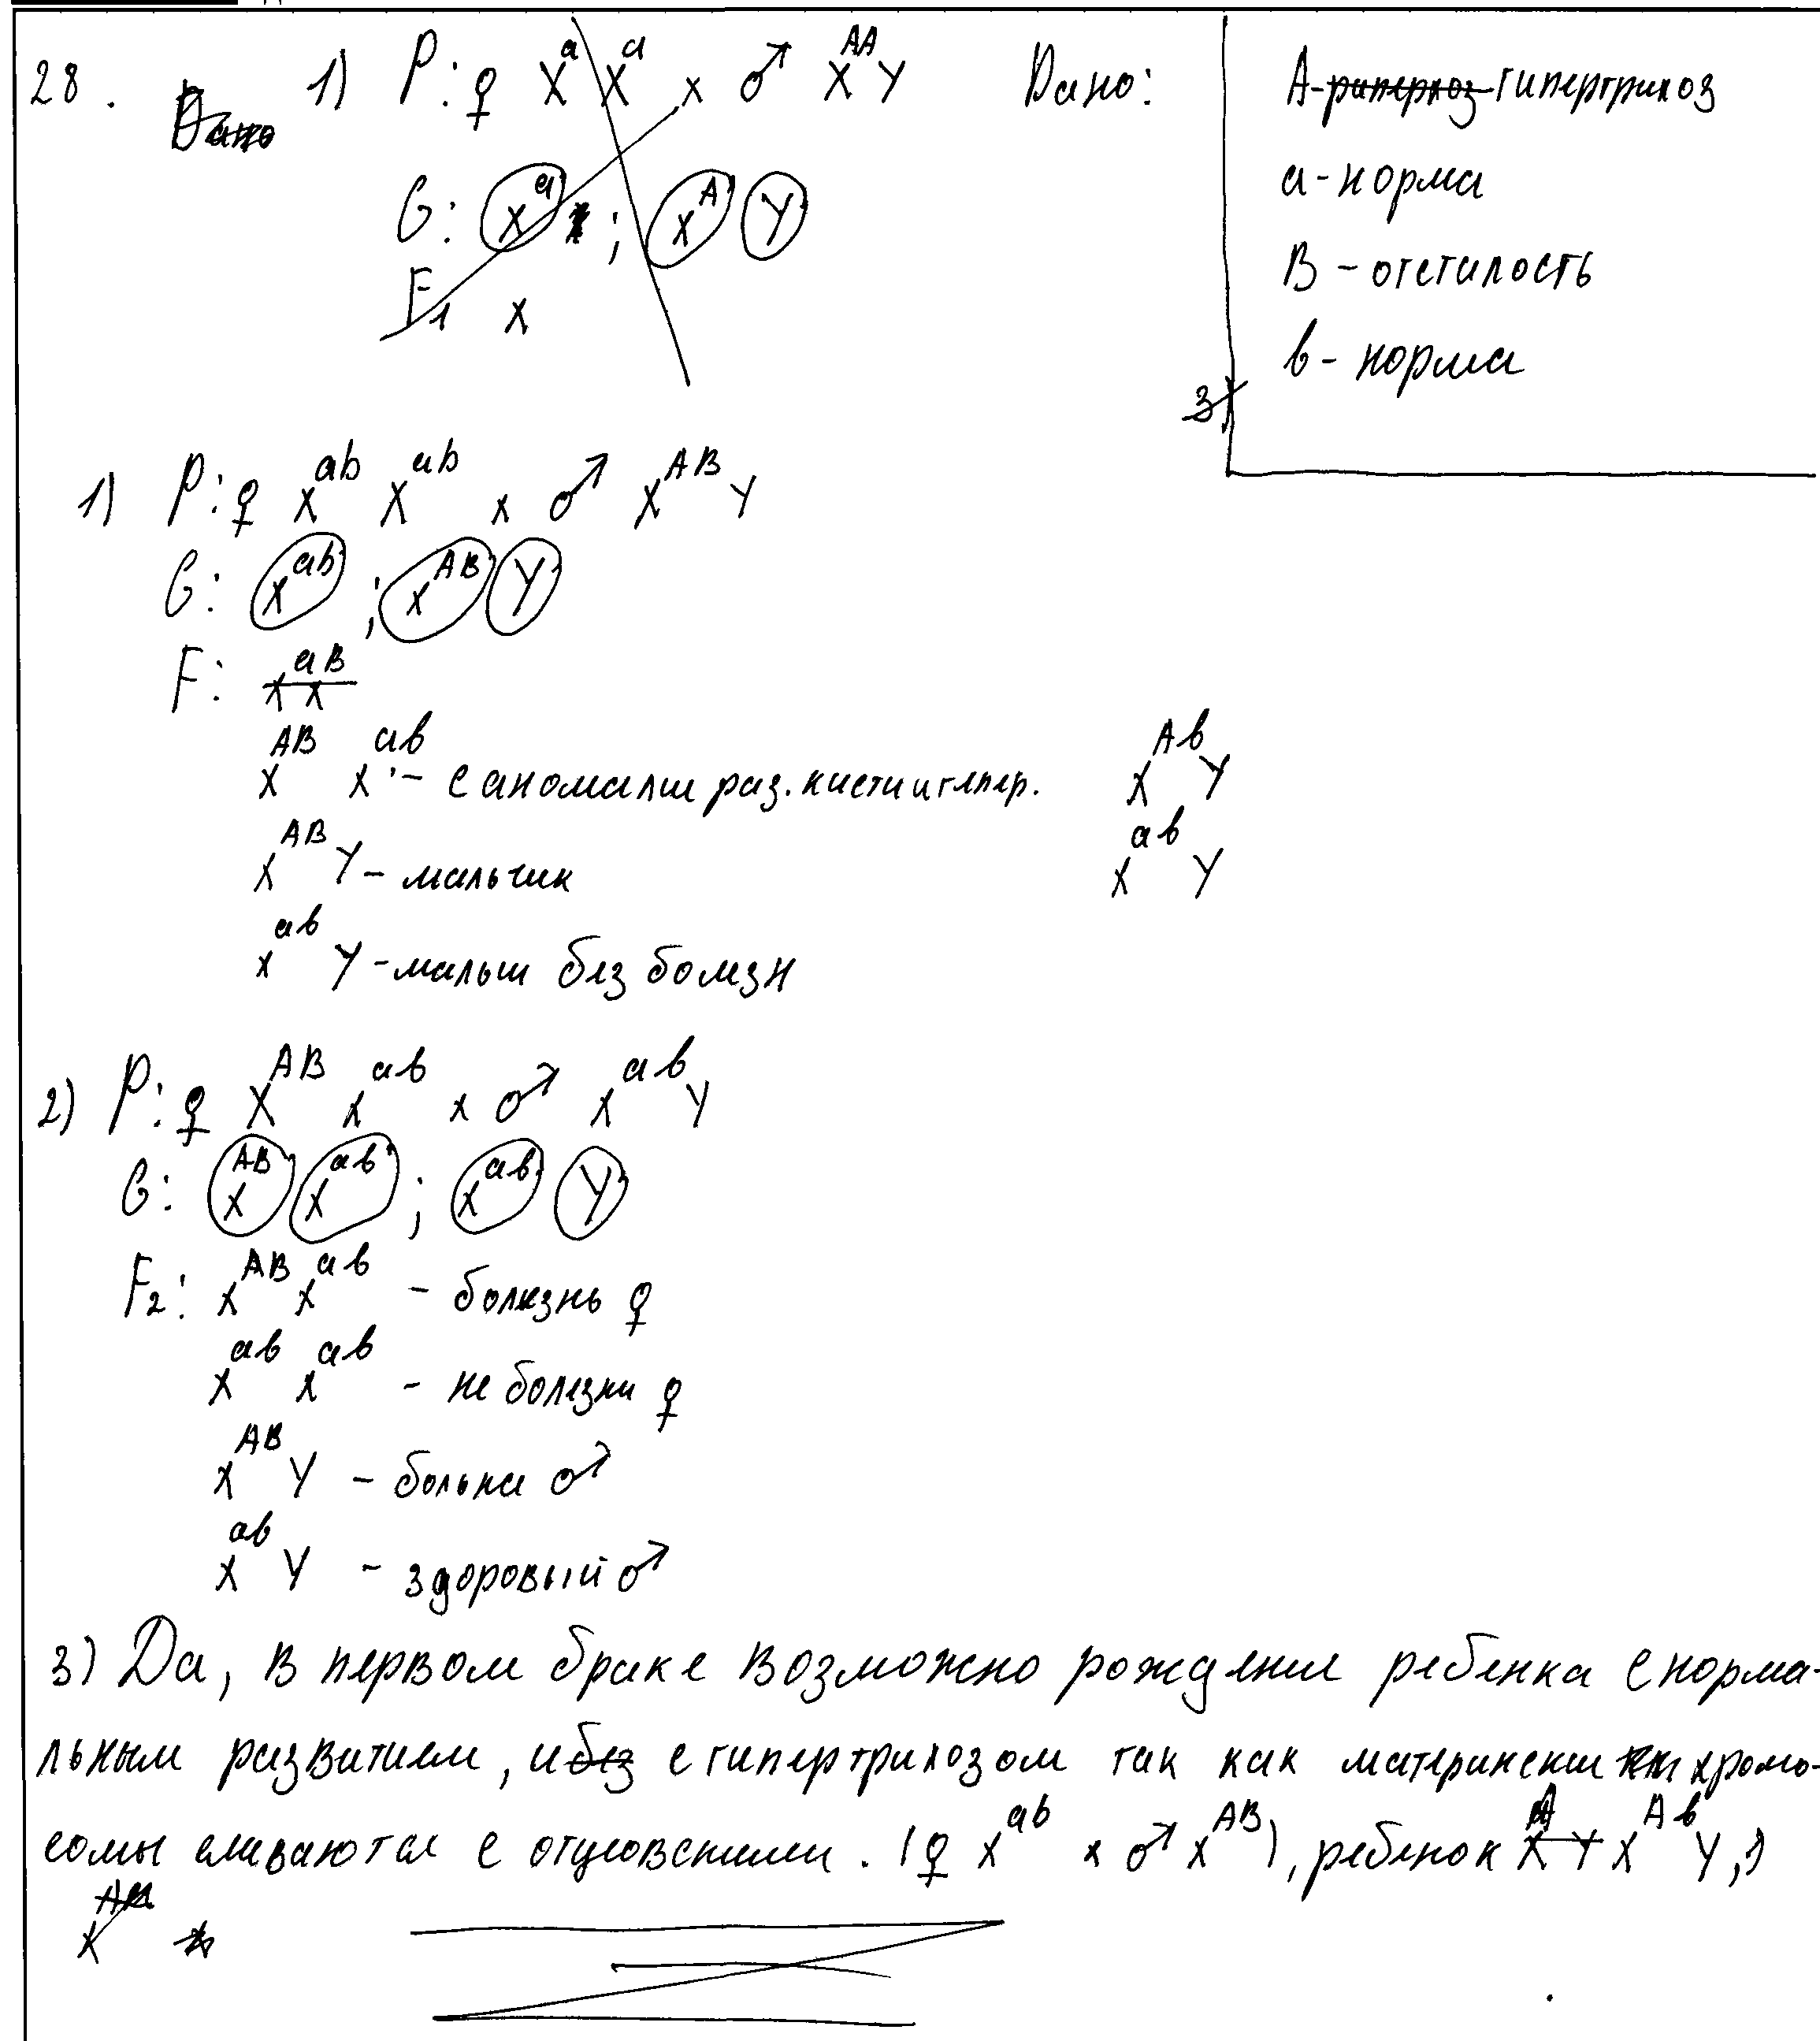 28. Дано 1) P: ♀ X^a X^a x ♂ X^AA Y Дано:
G: X^a ; X^A Y
F1 X
A - риперхоз гипертрихоз
a - норма
B - отсталость
b - норма
3)
1) P: ♀ X^ab X^ab x ♂ X^AB Y
G: X^ab ; X^AB Y
F: X^aB X
X^AB X^ab - с аномалии раз. кисти и гипер.
X^AB Y - мальчик
X^ab Y - малыш без болезн
X^Ab Y
X^ab Y
2) P: ♀ X^AB X^ab x ♂ X^ab Y
G: X^AB X^ab ; X^ab Y
F2: X^AB X^ab - болезнь ♀
X^ab X^ab - не болезни ♀
X^AB Y - больна ♂
X^ab Y - здоровый ♂
3) Да, в первом браке возможно рождение ребенка с норма-
льным развитием, и без с гипертрихозом так как материнские хромо-
сомы сливаются с отцовскими. (♀ X^ab x ♂ X^AB), ребенок X^A Y X^Ab Y,)
X